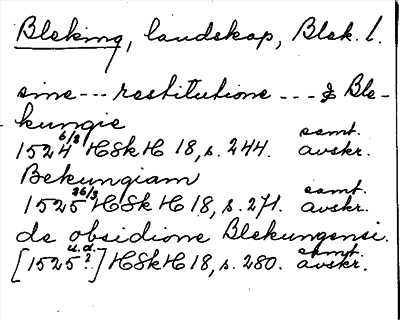 Bleking, landskap, Blek. l.
sine --- restitutione --- & Ble-
kungie
1524 6/8 HSkH 18, s. 244. samt. avskr.
Bekungiam
1525 26/3 HSkH 18, s. 271. samt. avskr.
de obsidione Blekungensi.
[1525 u.d.?] HSkH 18, s. 280. samt. avskr.